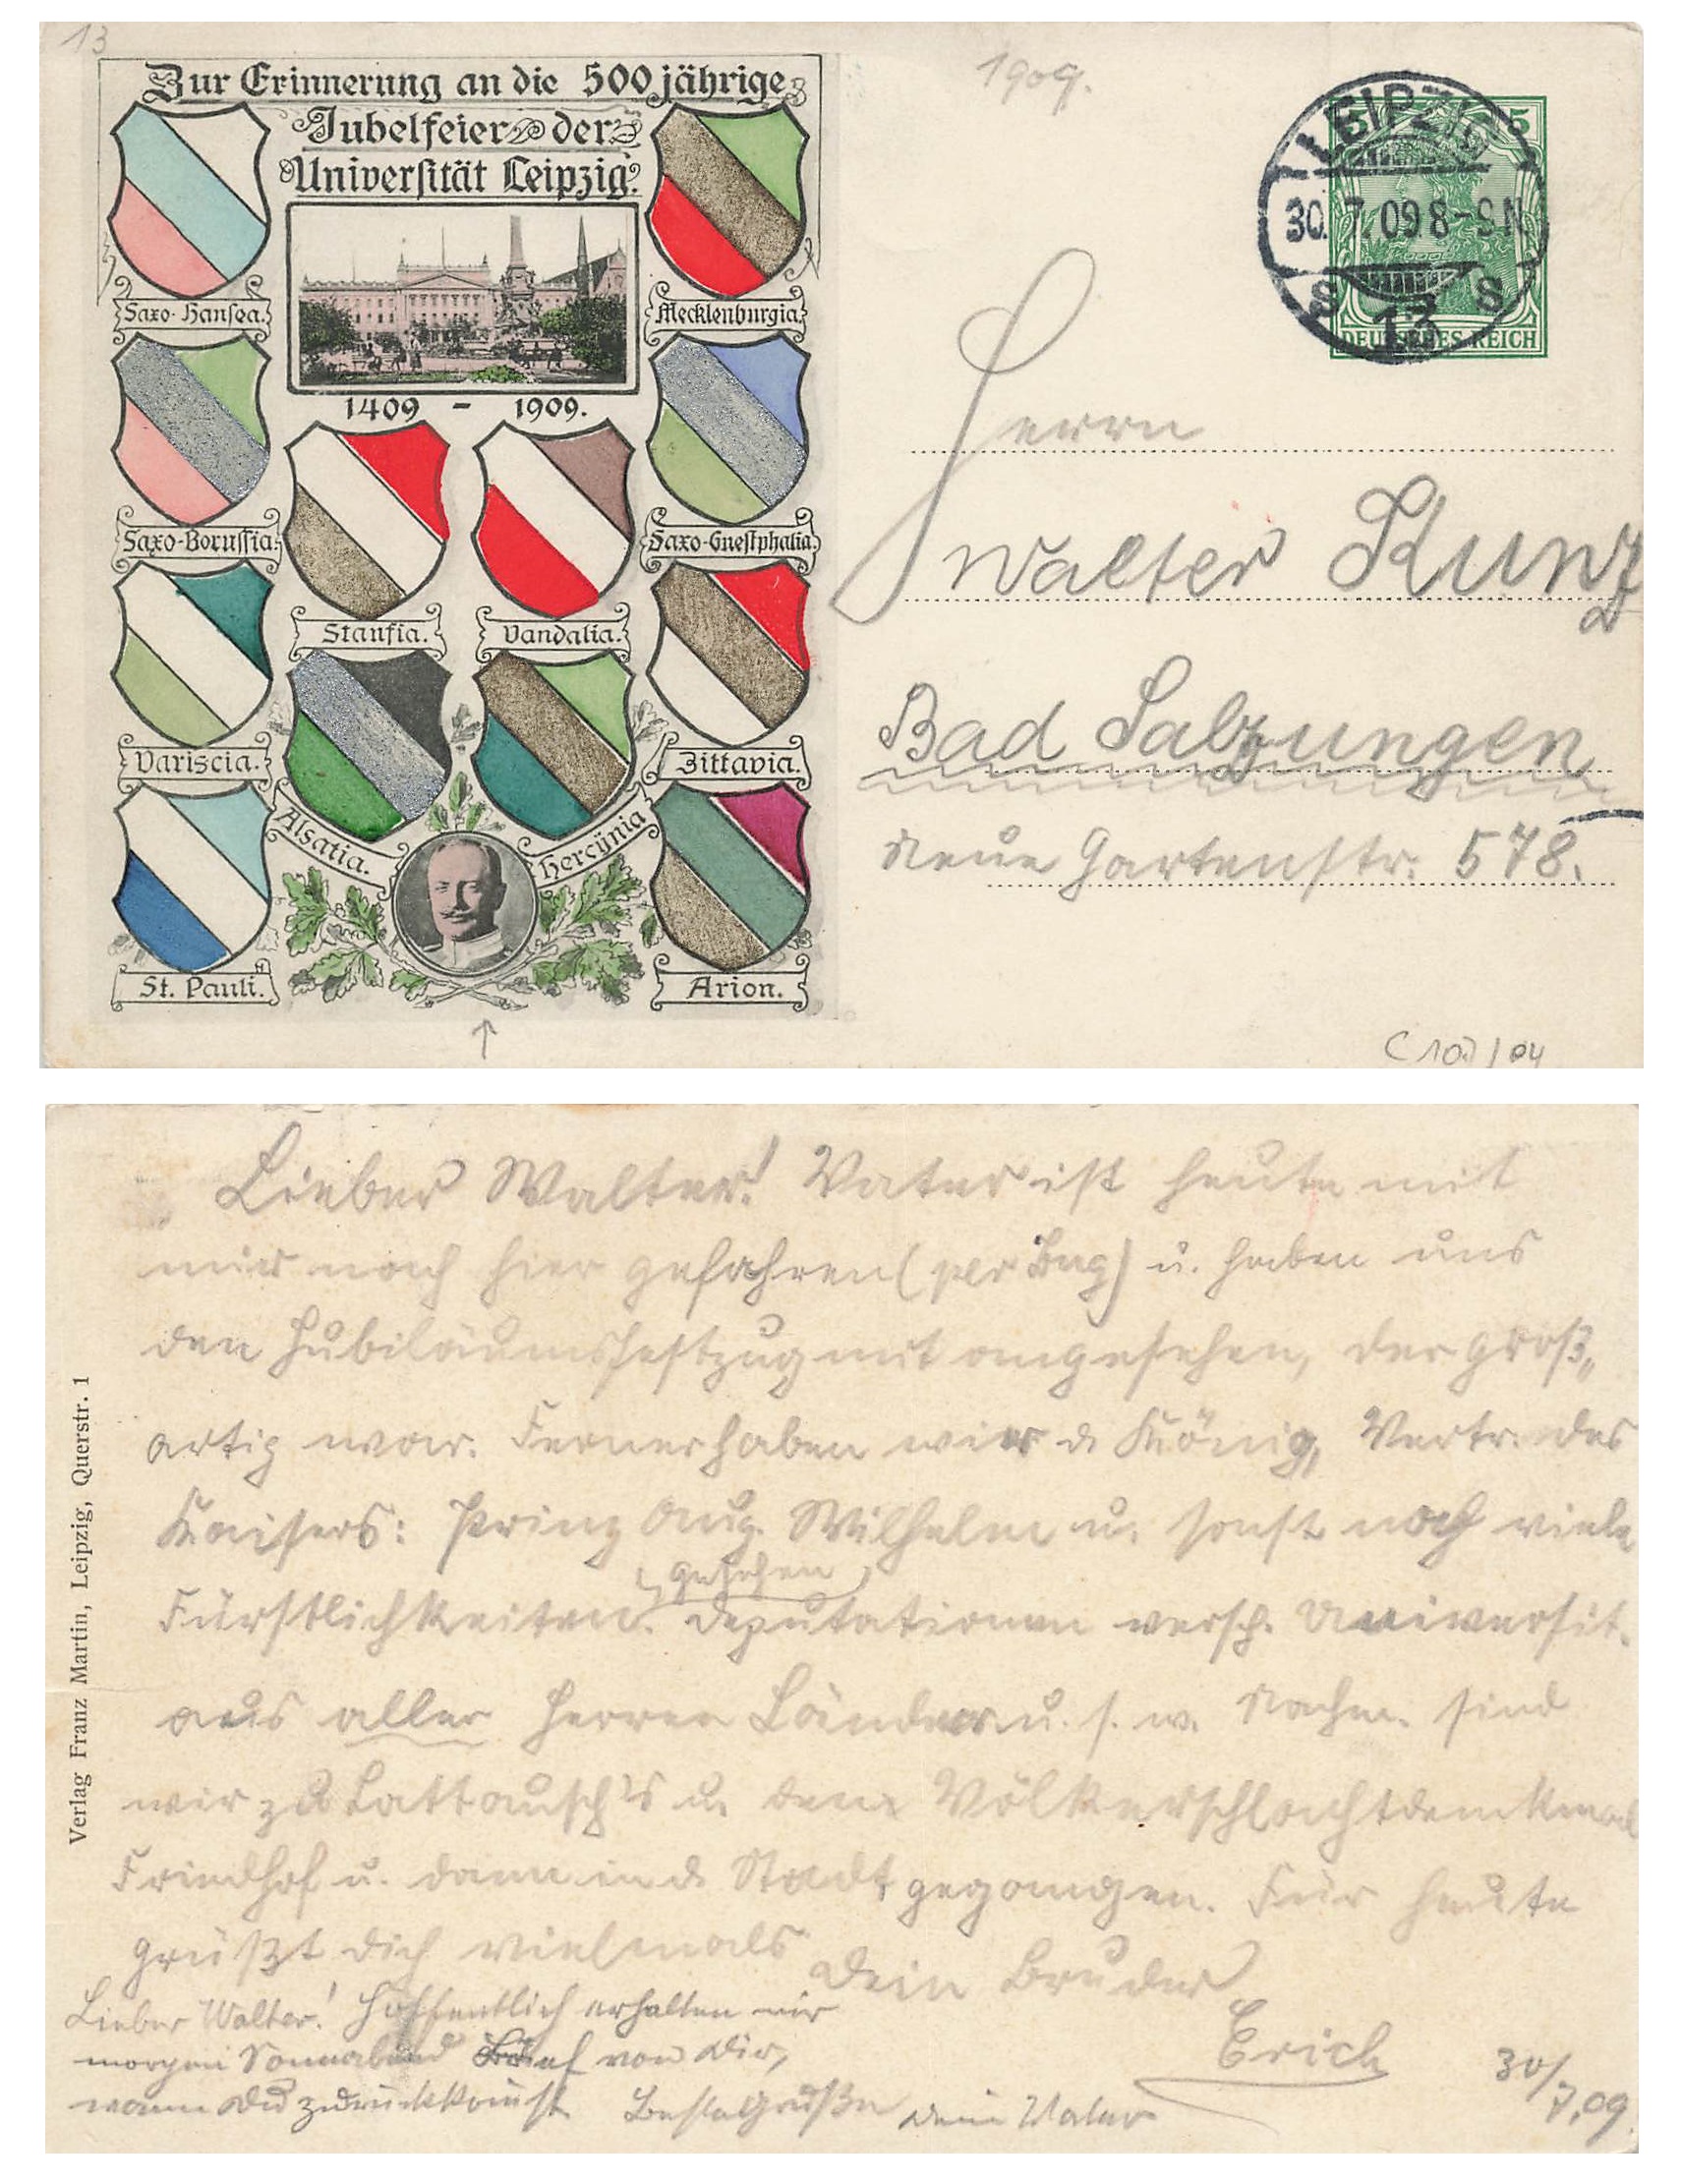 13
Zur Erinnerung an die 500jährige
Jubelfeier der
Universität Leipzig.
1409 - 1909.
Saxo-Hansea.
Mecklenburgia.
Saxo-Borussia.
Saxo-Guestphalia.
Staufia.
Vandalia.
Variscia.
Zittavia.
Alsatia.
Hercÿnia
St. Pauli.
Arion.
1909.
LEIPZIG
30.7.09 8-9N
13
5
DEUTSCHES REICH
Herrn
Walter Kunz
Bad Salzungen
Neue Gartenstr. 578.
Verlag Franz Martin, Leipzig, Querstr. 1
Lieber Walter! Vater ist heute mit
mir noch hier gefahren (per Zug) u. haben uns
den Jubiläumsfestzug mit angesehen, der groß„
artig war. Ferner haben wir d. König, Vertr. des
Kaisers: Prinz Aug. Wilhelm u. sonst noch viele
gesehen
Fürstlichkeiten. Deputationen versch. Universit.
aus aller Herren Länder u. s. w. Nachm. sind
wir zu u. dem Völkerschlachtdenkmal
Friedhof u. dann in d. Stadt gegangen. Für heute
grüßt dich vielmals
Dein Bruder
Erich
30/7.09.
Lieber Walter! Hoffentlich erhalten wir
morgen Sonnabend Brief von Dir,
wann Du zurückkommst. Beste Grüße Dein Vater